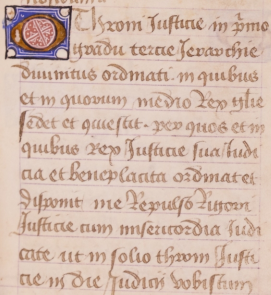 O Throni Justicie in p̄mo
gradu tercie Jerarchie
diuinitus ordinati in quibus
et in quorum medio Rex glīe
sedet et quiescit per quos et in
quibus Rex Justicie sua Judi
cia et beneplacita ordinat et
disponit me Repulso Rigori
Justicie cum misericordia Judi
cate ut in solio throni Justi
cie in die Judicii vobiscum